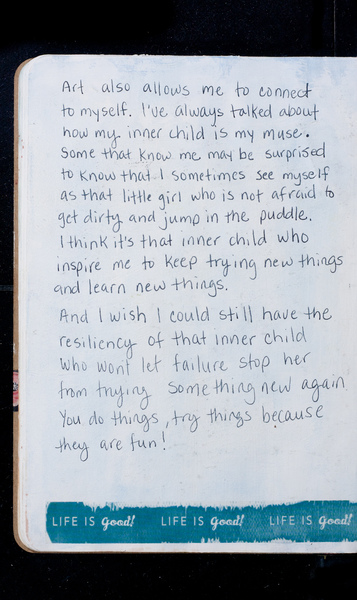 Art also allows me to connect
to myself. I've always talked about
how my inner child is my muse.
Some that know me may be surprised
to know that I sometimes see myself
as that little girl who is not afraid to
get dirty and jump in the puddle.
I think it's that inner child who
inspire me to keep trying new things
and learn new things.
And I wish I could still have the
resiliency of that inner child
who wont let failure stop her
from trying something new again
You do things, try things because
they are fun!
LIFE IS good! LIFE IS good! LIFE IS good!